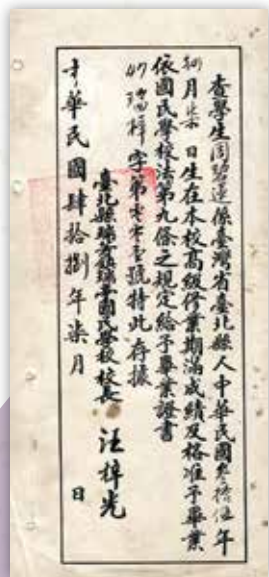 查學生周碧蓮係臺灣省臺北縣人中華民國叁拾伍年
月柒日生在本校高級修業期滿成績及格准予畢業
依國民學校法第九條之規定給予畢業證書
47瑞梓字第零零壹號特此存據
臺北縣瑞芳鎮國民學校校長 汪梓光
中華民國肆拾捌年柒月 日